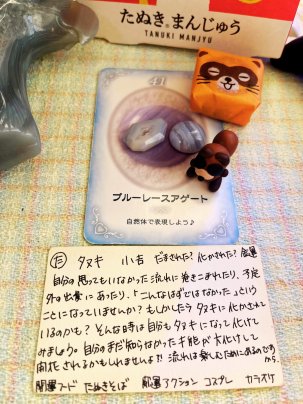 たぬきまんじゅう
TANUKI MANJYU
41
ブルーレースアゲート
自然体で表現しよう♪
た タヌキ 小吉 だまされた？化かされた？
自分の思ってもいなかった流れに巻きこまれたり、予定
外の出費にあったり、「こんなはずではなかった」という
ことになっていませんか？もしかしたらタヌキに化かされて
いるのかも？そんな時は自分もタヌキになって化けて
みましょう。自分のまだ知らなかった才能が大化けして
開花されるかもしれませんよ!! 流れは楽しむためにあるのですから。
開運フード たぬきそば 開運アクション コスプレ カラオケ